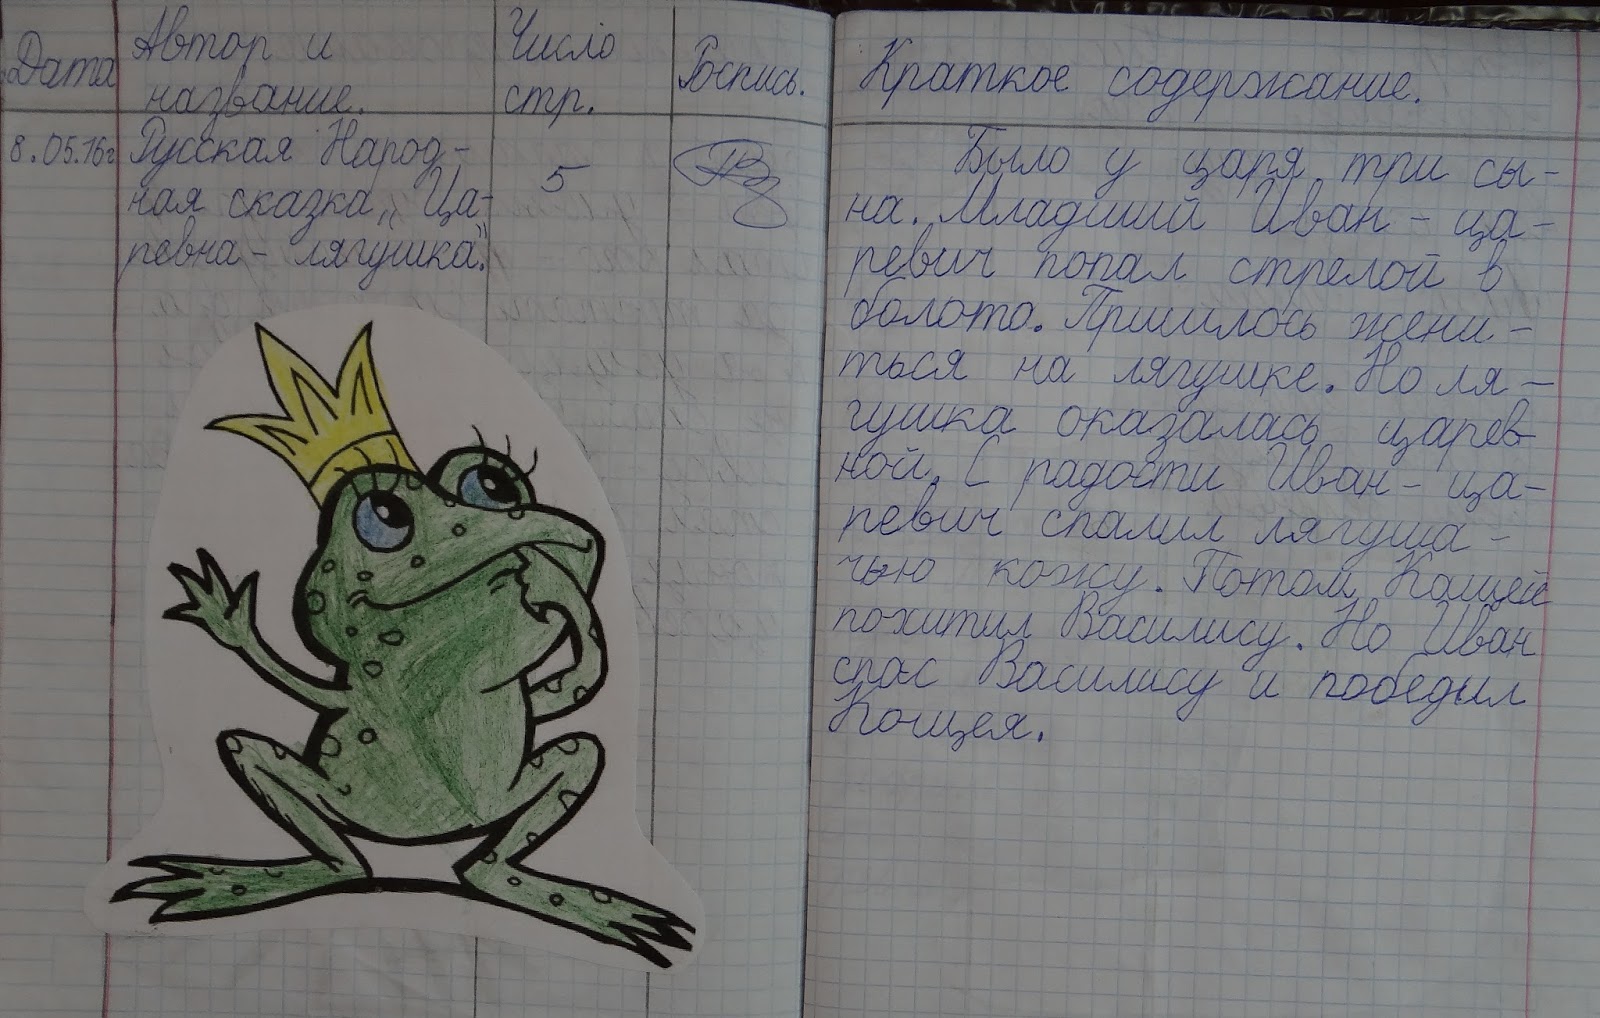 Дата
Автор и
название.
Число
стр.
Роспись.
8.05.16г
Русская Народ-
ная сказка „Ца-
ревна - лягушка".
5
Краткое содержание.
Было у царя три сы-
на. Младший Иван - ца-
ревич попал стрелой в
болото. Пришлось жени-
ться на лягушке. Но ля-
гушка оказалась царев
ной. С радости Иван - ца-
ревич спалил лягуша-
чью кожу. Потом Кощей
похитил Василису. Но Иван
спас Василису и победил
Кощея.